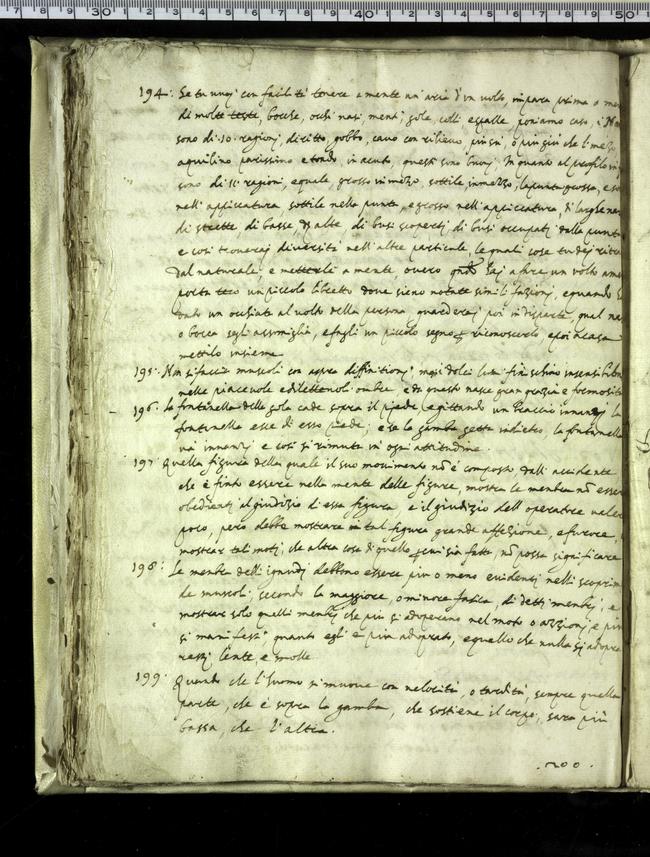 194: Se tu vuoi con facilità tenere a mente un'aria d'un volto, impara prima a me
di molte teste, bocche, occhi nasi, menti, gole, colli e spalle poniamo caso, i N
sono di .10. ragioni, diritto, gobbo, cavo con rilievo, più sù, o più giù che l'mezzo
aquilino parissimo e tondo, in acuto, questi sono buoni. In quanto al profilo in
sono di 11. ragioni, equale, grosso in mezzo, sottile in mezzo, la punta grossa, e so
nell'appiccatura, sottile nella punta, e grosso nell'appiccatura, di larghe na
di strette di basse, d'alte, di busi scoperti, di busi occupati dalla punta
e così troverai diversità nell'altre particule, le quali cose tu dei ritra
dal naturale, e metterle a mente, overo quando hai a fare un volto a me
porta teco un piccolo libretto dove sieno notate simili fazioni, e quando
dato un occhiata al volto della persona guarderai poi in disparte, qual na
o bocca segli assimiglia, e fagli un piccolo segno riconoscerlo, e poi a casa
mettilo insieme.
195. Non si faccia muscoli con aspra diffinitione, mà i dolci lumi finischino insensibilm
nelle piacevole e dilettevoli ombre, e di questo nasce gran grazia e formosità
196. La fontanella della gola cade sopra il piede, e gittando un braccio innanzi la
fontanella esse di esso piede; e se la gamba getta indietro, la fontanella
và innanzi, e così si rimuta in ogni attitudine.
197 Quella figura della quale il suo movimento nō è composto dell'accidente
che è finto essere nella mente delle figure, mostra le membra nō esser
obedienti al giudizio di essa figura, e il giudizio dell'operatore valer
poco, però debbe mostrare in tal figura grande affezione, e furore,
mostrar tali moti, che altra cosa di quello sia fatto nō possa significare
198: Le membra delli ignudi debbono essere più o meno evidenti nelli scoprim
de muscoli, secondo la maggiore, o minore fatica, di detti membri, e
mostrar solo quelli membri che più si adoperano nel moto o azzione, e più
si manifesti quanto egli è più adoprato, e quello che nulla si adopra
resti lente, e molle.
199. Quando che l'huomo si muove con velocità, o tardità, sempre quella
parte, che è sopra la gamba, che sostiene il corpo, sarà più
bassa, che l'altra.
.200.